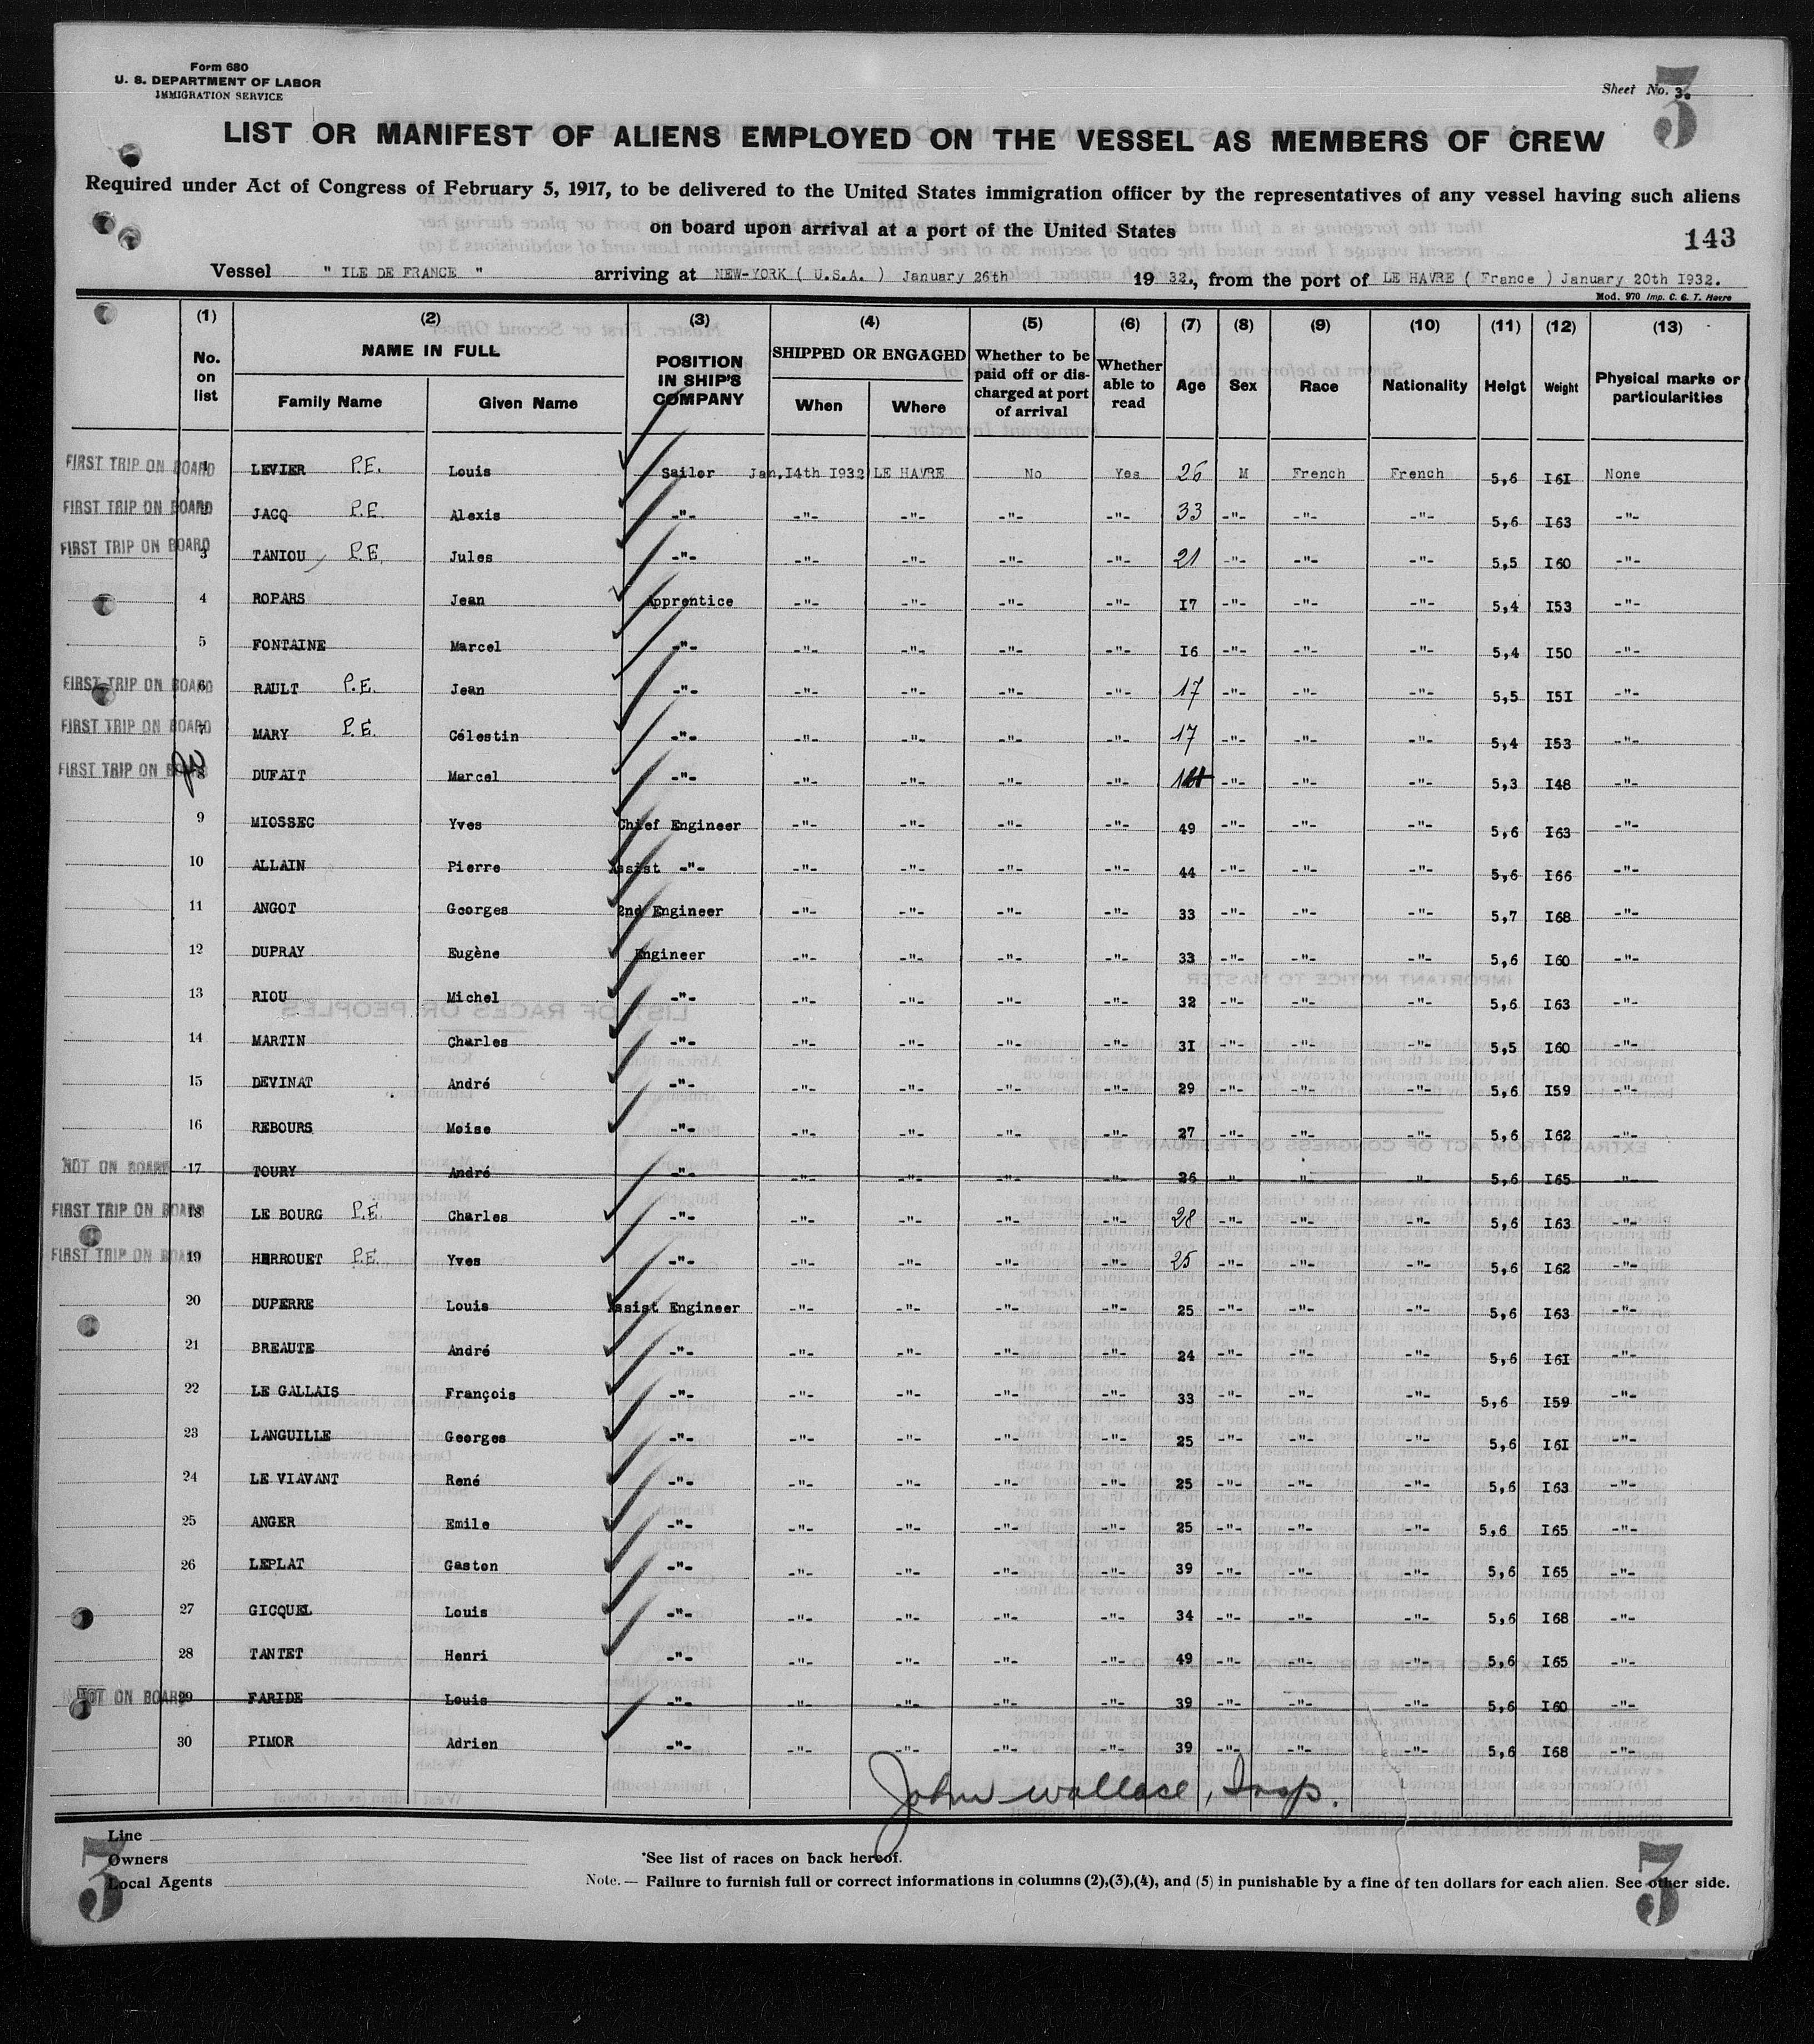 Form 680
U. S. DEPARTMENT OF LABOR
IMMIGRATION SERVICE
Sheet No. 3.
3
LIST OR MANIFEST OF ALIENS EMPLOYED ON THE VESSEL AS MEMBERS OF CREW
Required under Act of Congress of February 5, 1917, to be delivered to the United States immigration officer by the representatives of any vessel having such aliens
on board upon arrival at a port of the United States
143
Vessel " ILE DE FRANCE " arriving at NEW-YORK ( U.S.A. ) January 26th 19 32., from the port of LE HAVRE ( France ) January 20th I932.
Mod. 970 Imp. C. G. T. Havre
(1) (2) (3) (4) (5) (6) (7) (8) (9) (10) (11) (12) (13)
No. on list NAME IN FULL Family Name Given Name POSITION IN SHIP'S COMPANY SHIPPED OR ENGAGED When Where Whether to be paid off or discharged at port of arrival Whether able to read Age Sex Race Nationality Heigt Weight Physical marks or particularities
FIRST TRIP ON BOARD 1 LEVIER P.E. Louis Sailor Jan.I4th I932 LE HAVRE No Yes 26 M French French 5,6 I6I None
FIRST TRIP ON BOARD 2 JACQ P.E. Alexis -"- -"- -"- -"- -"- 33 -"- -"- -"- 5,6 I63 -"-
FIRST TRIP ON BOARD 3 TANIOU P.E. Jules -"- -"- -"- -"- -"- 21 -"- -"- -"- 5,5 I60 -"-
4 ROPARS Jean Apprentice -"- -"- -"- -"- I7 -"- -"- -"- 5,4 I53 -"-
5 FONTAINE Marcel -"- -"- -"- -"- -"- I6 -"- -"- -"- 5,4 I50 -"-
FIRST TRIP ON BOARD 6 RAULT P.E. Jean -"- -"- -"- -"- -"- 17 -"- -"- -"- 5,5 I5I -"-
FIRST TRIP ON BOARD 7 MARY P.E. Célestin -"- -"- -"- -"- -"- 17 -"- -"- -"- 5,4 I53 -"-
FIRST TRIP ON BOARD 8 DUFAIT Marcel -"- -"- -"- -"- -"- -"- -"- -"- 5,3 I48 -"-
9 MIOSSEC Yves Chief Engineer -"- -"- -"- -"- 49 -"- -"- -"- 5,6 I63 -"-
10 ALLAIN Pierre Assist -"- -"- -"- -"- -"- 44 -"- -"- -"- 5,6 I66 -"-
11 ANGOT Georges 2nd Engineer -"- -"- -"- -"- 33 -"- -"- -"- 5,7 I68 -"-
12 DUPRAY Eugène Engineer -"- -"- -"- -"- 33 -"- -"- -"- 5,6 I60 -"-
13 RIOU Michel -"- -"- -"- -"- -"- 32 -"- -"- -"- 5,6 I63 -"-
14 MARTIN Charles -"- -"- -"- -"- -"- 3I -"- -"- -"- 5,5 I60 -"-
15 DEVINAT André -"- -"- -"- -"- -"- 29 -"- -"- -"- 5,6 I59 -"-
16 REBOURS Moise -"- -"- -"- -"- -"- 27 -"- -"- -"- 5,6 I62 -"-
NOT ON BOARD 17 TOURY André -"- -"- -"- -"- -"- 26 -"- " " 5,6 I65 -"-
FIRST TRIP ON BOARD 18 LE BOURG P.E. Charles -"- -"- -"- -"- -"- 28 -"- -"- -"- 5,6 I63 -"-
FIRST TRIP ON BOARD 19 HERROUET P.E. Yves -"- -"- -"- -"- -"- 25 -"- -"- -"- 5,6 I62 -"-
20 DUPERRE Louis Assist Engineer -"- -"- -"- -"- 25 -"- -"- -"- 5,6 I63 -"-
21 BREAUTE André -"- -"- -"- -"- -"- 24 -"- -"- -"- 5,6 I6I -"-
22 LE GALLAIS François -"- -"- -"- -"- -"- 33 -"- -"- -"- 5,6 I59 -"-
23 LANGUILLE Georges -"- -"- -"- -"- -"- 25 -"- -"- -"- 5,6 I6I -"-
24 LE VIAVANT René -"- -"- -"- -"- -"- 25 -"- -"- -"- 5,6 I63 -"-
25 ANGER Emile -"- -"- -"- -"- -"- 25 -"- -"- -"- 5,6 I65 -"-
26 LEPLAT Gaston -"- -"- -"- -"- -"- 39 -"- -"- -"- 5,6 I65 -"-
27 GICQUEL Louis -"- -"- -"- -"- -"- 34 -"- -"- -"- 5,6 I68 -"-
28 TANTET Henri -"- -"- -"- -"- -"- 49 -"- -"- -"- 5,6 I65 -"-
NOT ON BOARD 29 FARIDE Louis -"- -"- -"- -"- -"- 39 -"- -"- -"- 5,6 I60 -"-
30 PIMOR Adrien -"- -"- -"- -"- -"- 39 -"- -"- -"- 5,6 I68 -"-
John Wallace, Insp.
Line
Owners
Local Agents
3
*See list of races on back hereof.
Note.— Failure to furnish full or correct informations in columns (2),(3),(4), and (5) in punishable by a fine of ten dollars for each alien. See other side.
3